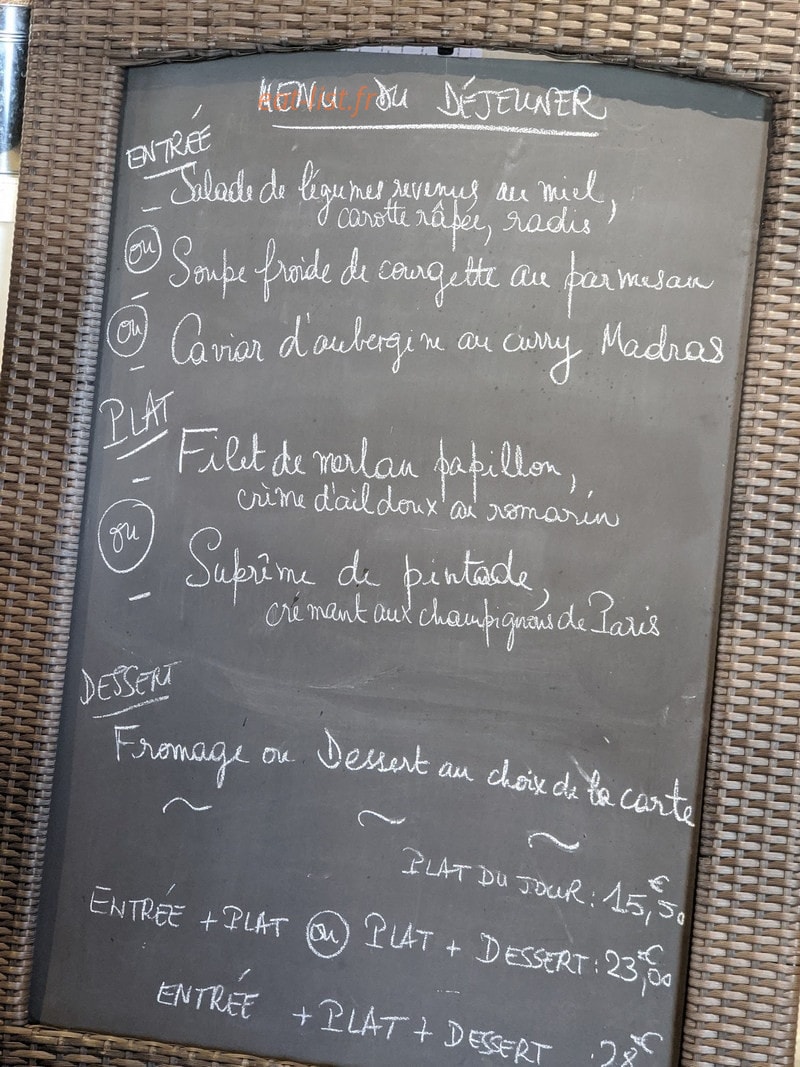 MENU DU DÉJEUNER
eat-list.fr
ENTRÉE
- Salade de légumes revenus au miel,
carotte râpée, radis
ou
- Soupe froide de courgette au parmesan
ou
- Caviar d'aubergine au curry Madras
PLAT
- Filet de merlan papillon,
crème d'ail doux au romarin
ou
- Suprême de pintade,
crémant aux champignons de Paris
DESSERT
Fromage ou Dessert au choix de la carte
~ ~ ~
PLAT DU JOUR : 15,50 €
ENTRÉE + PLAT ou PLAT + DESSERT : 23,00 €
ENTRÉE + PLAT + DESSERT : 28 €